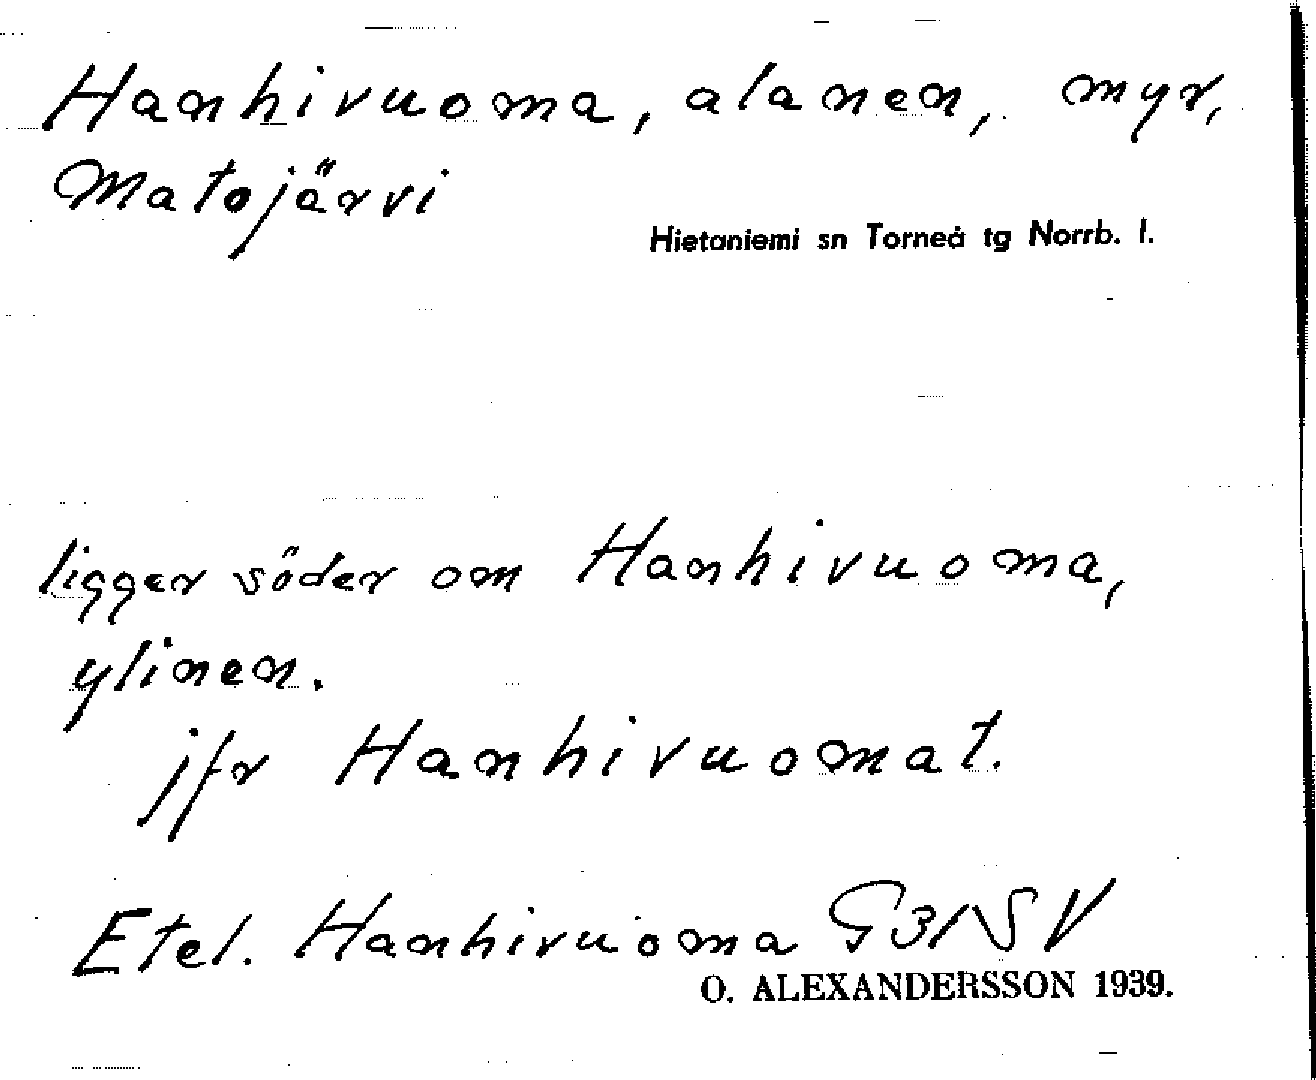 Hanhivuoma, alanen, myr,
Matojärvi
Hietaniemi sn Torneå tg Norrb. l.
ligger söder om Hanhivuoma,
ylinen.
jfr Hanhivuomat.
Etel. Hanhivuoma G3NSV
O. ALEXANDERSSON 1939.